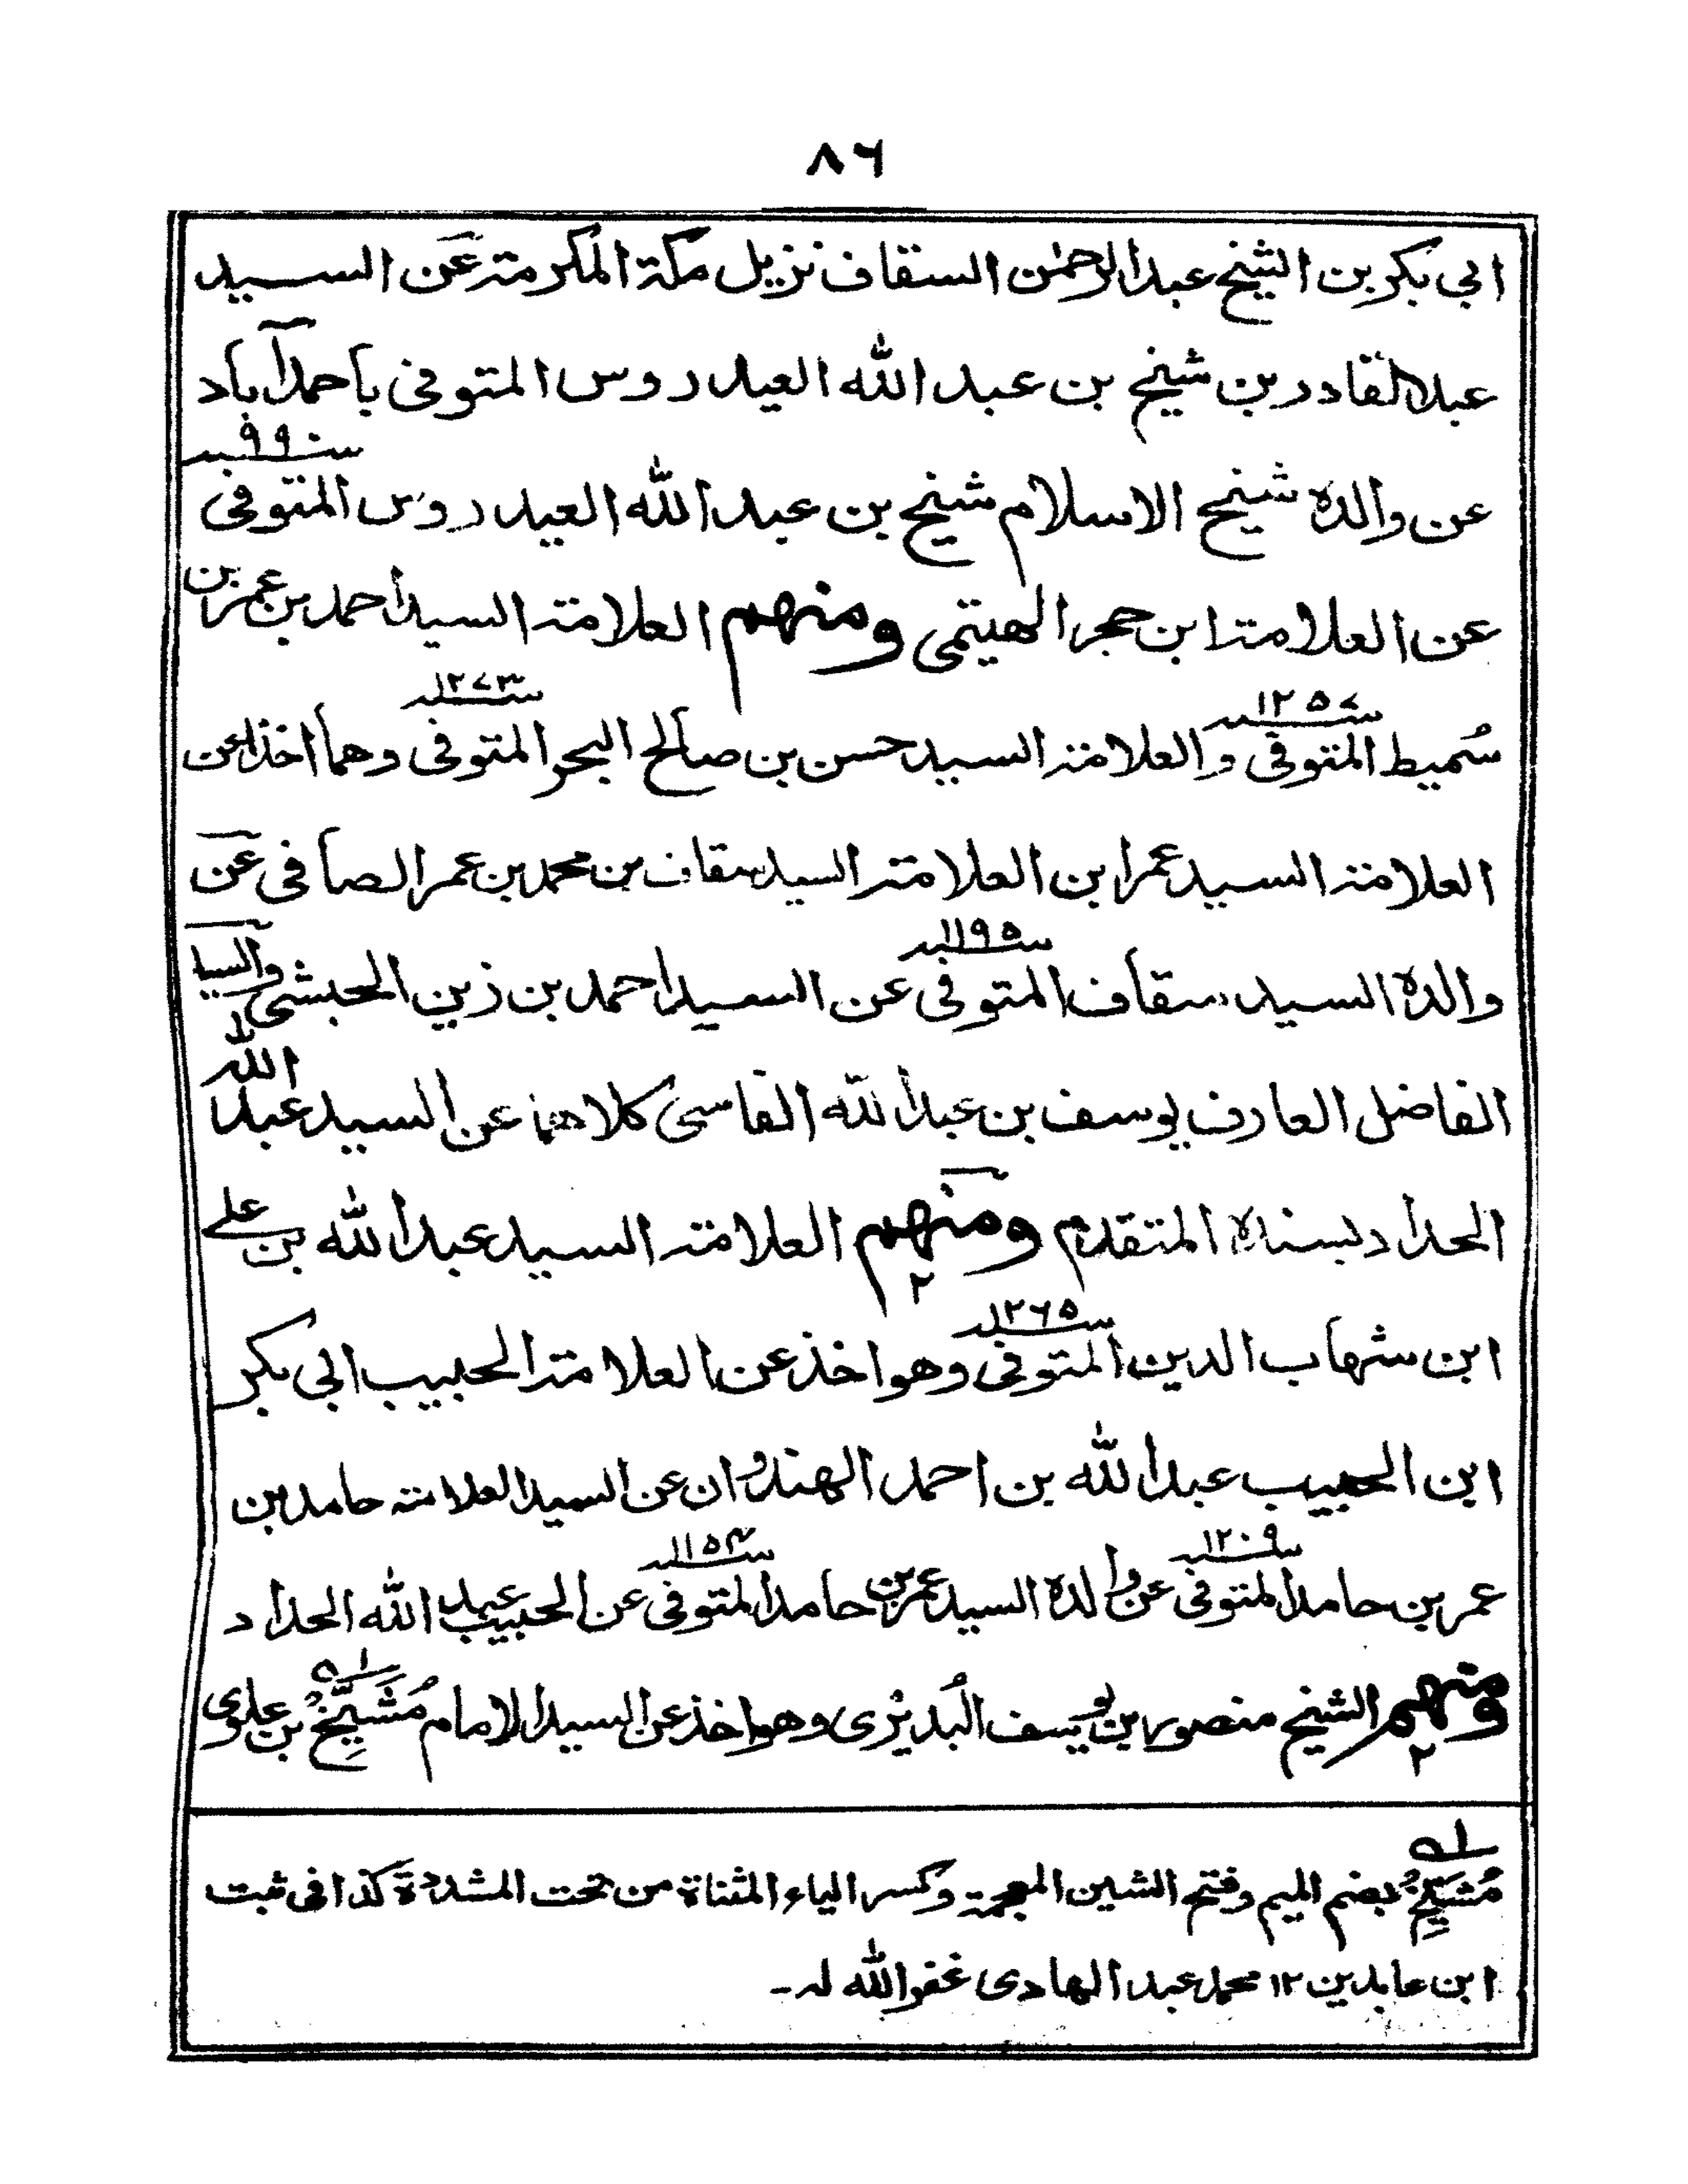 ٨٦
ابي بكر بن الشيخ عبد الرحمٰن السقاف نزيل مكة المكرمة عن السيد
عبد القادر بن شيخ بن عبد الله العيدروس المتوفى باحمد آباد
عن والده شيخ الاسلام شيخ بن عبد الله العيدروس المتوفى سنة ٩٩٠
عن العلامة ابن حجر الهيتمي ومنهم العلامة السيد احمد بن عمر بن
سُميط المتوفى سنة ١٢٥٧ والعلامة السيد حسن بن صالح البحر المتوفى سنة ١٢٧٣ وهما اخذا عن
العلامة السيد عمر ابن العلامة السيد سقاف بن محمد بن عمر الصافي عن
والده السيد سقاف المتوفى سنة ١١٩٥ عن السيد احمد بن زين الحبشي والسيد
الفاضل العارف يوسف بن عبد الله الفاسي كلاهما عن السيد عبد الله
الحداد بسنده المتقدم ومنهم العلامة السيد عبد الله بن علے
ابن شهاب الدين المتوفى سنة ١٢٦٥ وهو اخذ عن العلامة الحبيب ابي بكر
ابن الحبيب عبد الله بن احمد الهندوان عن السيد العلامة حامد بن
عمر بن حامد المتوفى سنة ١٢٠٩ عن والده السيد عمر بن حامد المتوفى سنة ١١٥٤ عن الحبيب عبد الله الحداد
ومنهم الشيخ منصور بن يوسف البُديْري وهو اخذ عن السيد الامام مُشَيِّخ بن علوي
مُشَيِّخ بضم الميم وفتح الشين المعجمة وكسر الياء المثناة من تحت المشددة كذا في ثبت
ابن عابدين ١٢ محمد عبد الهادي غفر الله له -